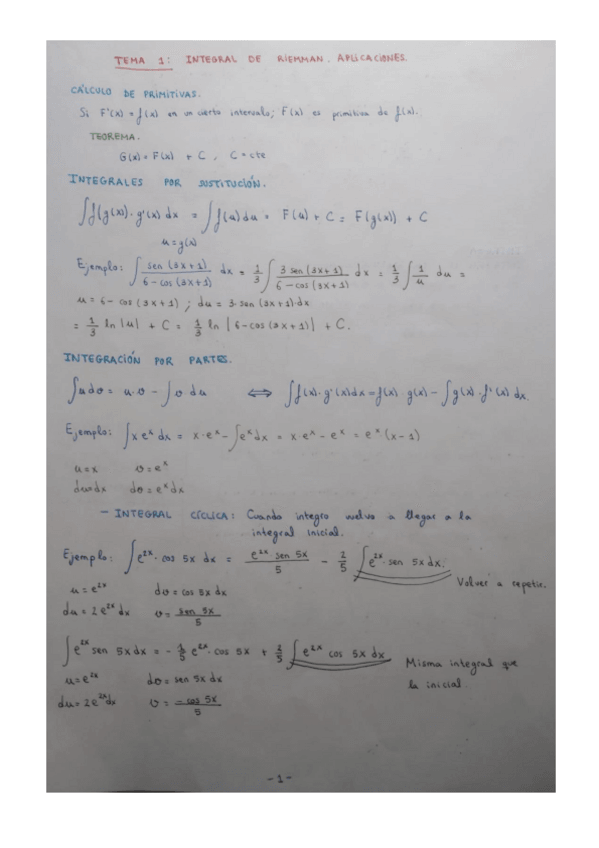 TEMA 1: INTEGRAL DE RIEMMAN. APLICACIONES.
CÁLCULO DE PRIMITIVAS.
Si F'(x) = f(x) en un cierto intervalo; F(x) es primitiva de f(x).
TEOREMA.
G(x) = F(x) + C , C = cte
INTEGRALES POR SUSTITUCIÓN.
∫f(g(x))·g'(x) dx = ∫f(u) du = F(u) + C = F(g(x)) + C
u = g(x)
Ejemplo: ∫ sen (3x+1) / 6-cos (3x+1) dx = 1/3 ∫ 3 sen (3x+1) / 6-cos (3x+1) dx = 1/3 ∫ 1/u du =
u = 6-cos (3x+1) ; du = 3·sen (3x+1)·dx
= 1/3 ln |u| + C = 1/3 ln |6-cos (3x+1)| + C.
INTEGRACIÓN POR PARTES.
∫u dv = u·v - ∫v du ⟺ ∫f(x)·g'(x)dx = f(x)·g(x) - ∫g(x)·f'(x) dx.
Ejemplo: ∫x eˣ dx = x·eˣ - ∫eˣdx = x·eˣ - eˣ = eˣ(x-1)
u = x v = eˣ
du = dx dv = eˣdx
- INTEGRAL CÍCLICA: Cuando integro vuelvo a llegar a la
integral inicial.
Ejemplo: ∫e²ˣ·cos 5x dx = e²ˣ sen 5x / 5 - 2/5 ∫e²ˣ·sen 5x dx.
Volver a repetir.
u = e²ˣ dv = cos 5x dx
du = 2e²ˣdx v = sen 5x / 5
∫e²ˣ sen 5x dx = - 1/5 e²ˣ·cos 5x + 2/5 ∫e²ˣ cos 5x dx
Misma integral que
la inicial.
u = e²ˣ dv = sen 5x dx
du = 2e²ˣdx v = -cos 5x / 5
-1-